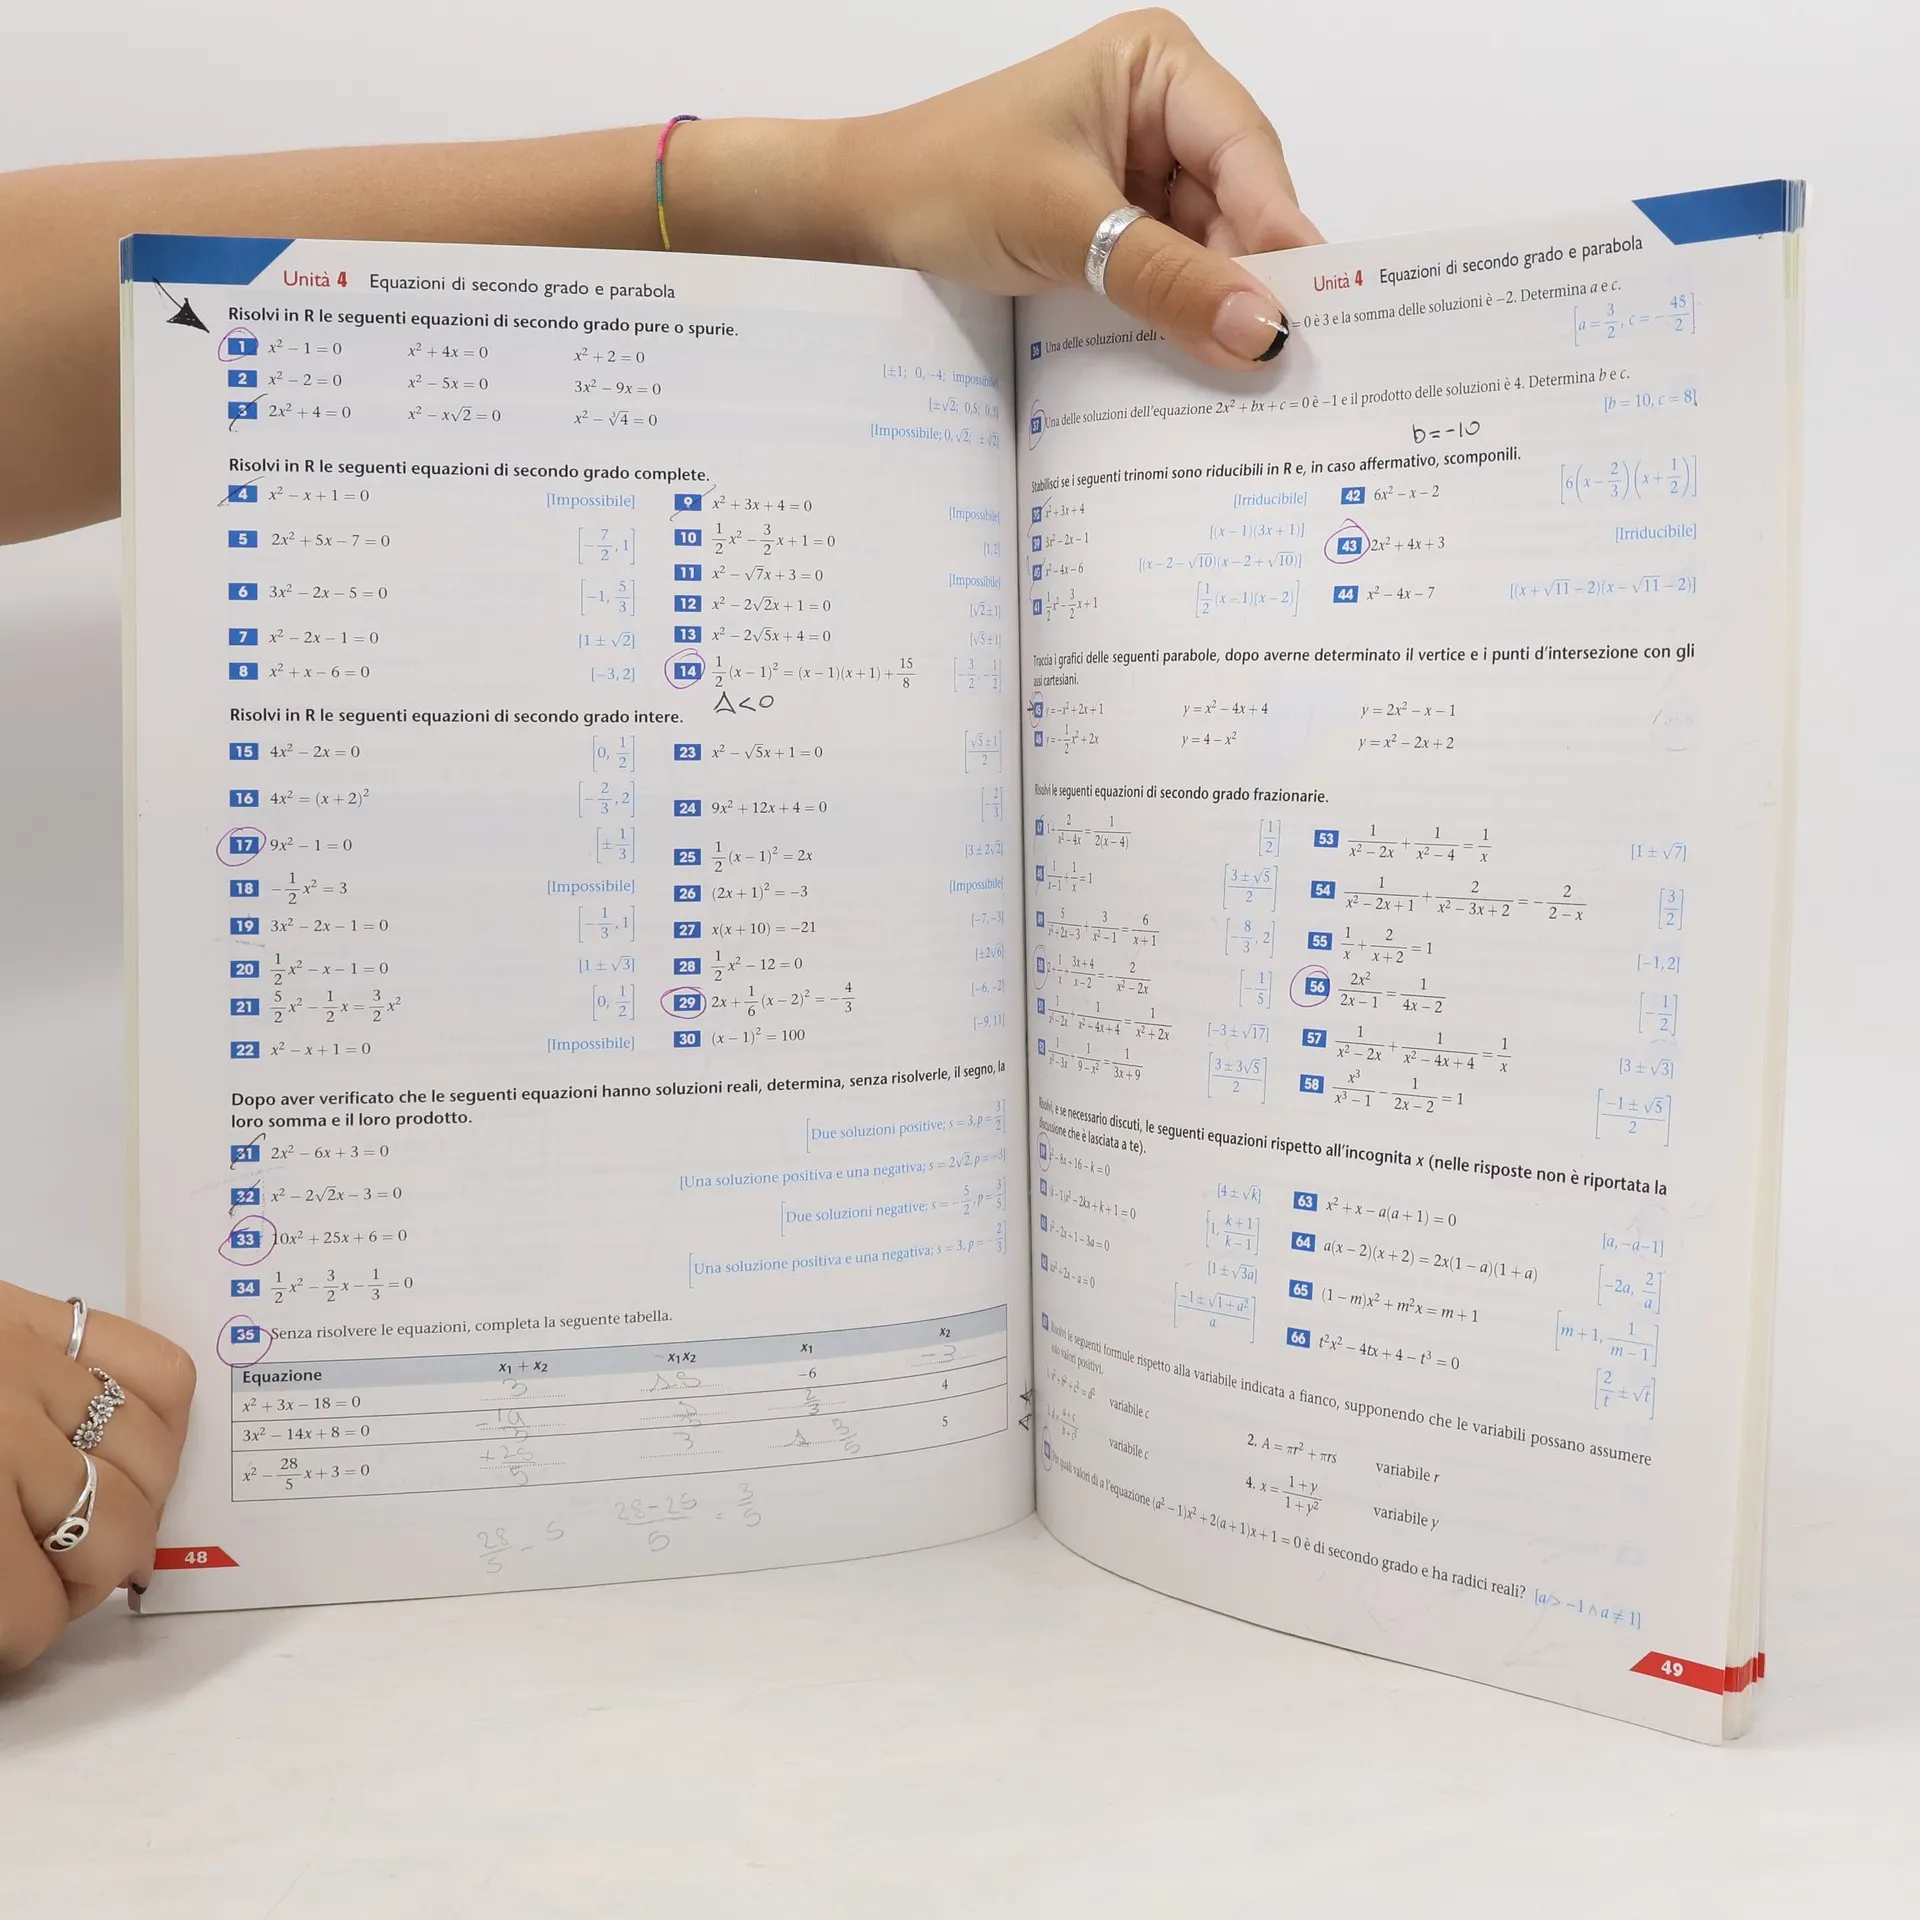 Unità 4 Equazioni di secondo grado e parabola
Risolvi in R le seguenti equazioni di secondo grado pure o spurie.
1 x² − 1 = 0 x² + 4x = 0 x² + 2 = 0 [±1; 0, −4; impossibile]
2 x² − 2 = 0 x² − 5x = 0 3x² − 9x = 0 [±√2; 0,5; 0,3]
3 2x² + 4 = 0 x² − x√2 = 0 x² − ∛4 = 0 [Impossibile; 0, √2;
Risolvi in R le seguenti equazioni di secondo grado complete.
4 x² − x + 1 = 0 [Impossibile]
5 2x² + 5x − 7 = 0 [−7/2, 1]
6 3x² − 2x − 5 = 0 [−1, 5/3]
7 x² − 2x − 1 = 0 [1 ± √2]
8 x² + x − 6 = 0 [−3, 2]
9 x² + 3x + 4 = 0 [Impossibile]
10 1/2 x² − 3/2 x + 1 = 0 [1, 2]
11 x² − √7x + 3 = 0 [Impossibile]
12 x² − 2√2x + 1 = 0 [√2±1]
13 x² − 2√5x + 4 = 0 [√5±1]
14 1/2 (x − 1)² = (x − 1)(x + 1) + 15/8 [−3/2, −1/2]
Δ<0
Risolvi in R le seguenti equazioni di secondo grado intere.
15 4x² − 2x = 0 [0, 1/2]
16 4x² = (x + 2)² [−2/3, 2]
17 9x² − 1 = 0 [±1/3]
18 −1/2 x² = 3 [Impossibile]
19 3x² − 2x − 1 = 0 [−1/3, 1]
20 1/2 x² − x − 1 = 0 [1 ± √3]
21 5/2 x² − 1/2 x = 3/2 x² [0, 1/2]
22 x² − x + 1 = 0 [Impossibile]
23 x² − √5x + 1 = 0 [(√5±1)/2]
24 9x² + 12x + 4 = 0 [−2/3]
25 1/2 (x − 1)² = 2x [3 ± 2√2]
26 (2x + 1)² = −3 [Impossibile]
27 x(x + 10) = −21 [−7, −3]
28 1/2 x² − 12 = 0 [±2√6]
29 2x + 1/6 (x − 2)² = −4/3 [−6, −2]
30 (x − 1)² = 100 [−9, 11]
Dopo aver verificato che le seguenti equazioni hanno soluzioni reali, determina, senza risolverle, il segno, la
loro somma e il loro prodotto.
31 2x² − 6x + 3 = 0 [Due soluzioni positive; s = 3, p = 3/2]
32 x² − 2√2x − 3 = 0 [Una soluzione positiva e una negativa; s = 2√2, p = −3]
33 10x² + 25x + 6 = 0 [Due soluzioni negative; s = −5/2, p = 3/5]
34 1/2 x² − 3/2 x − 1/3 = 0 [Una soluzione positiva e una negativa; s = 3, p = −2/3]
35 Senza risolvere le equazioni, completa la seguente tabella.
Equazione x₁ + x₂ x₁x₂ x₁ x₂
x² + 3x − 18 = 0 3 −6 −3
3x² − 14x + 8 = 0 2/3 4
x² − 28/5 x + 3 = 0 3 3/5 5
28/5 − 5 (28−25)/5 = 3/5
48
Unità 4 Equazioni di secondo grado e parabola
36 Una delle soluzioni dell' = 0 è 3 e la somma delle soluzioni è −2. Determina a e c.
[a = 3/2, c = −45/2]
37 Una delle soluzioni dell'equazione 2x² + bx + c = 0 è −1 e il prodotto delle soluzioni è 4. Determina b e c.
[b = 10, c = 8]
b = −10
Stabilisci se i seguenti trinomi sono riducibili in R e, in caso affermativo, scomponili.
38 x² + 3x + 4 [Irriducibile]
39 3x² − 2x − 1 [(x − 1)(3x + 1)]
40 x² − 4x − 6 [(x − 2 − √10)(x − 2 + √10)]
41 1/2 x² − 3/2 x + 1 [1/2 (x − 1)(x − 2)]
42 6x² − x − 2 [6(x − 2/3)(x + 1/2)]
43 2x² + 4x + 3 [Irriducibile]
44 x² − 4x − 7 [(x + √11 − 2)(x − √11 − 2)]
Traccia i grafici delle seguenti parabole, dopo averne determinato il vertice e i punti d'intersezione con gli
assi cartesiani.
45 y = −x² + 2x + 1 y = x² − 4x + 4 y = 2x² − x − 1
46 y = −1/2 x² + 2x y = 4 − x² y = x² − 2x + 2
Risolvi le seguenti equazioni di secondo grado frazionarie.
47 1 + 2/(x² − 4x) = 1/(2(x − 4)) [1/2]
48 1/(x − 1) + 1/x = 1 [(3 ± √5)/2]
49 5/(x² + 2x − 3) + 3/(x² − 1) = 6/(x + 1) [−8/3, 2]
50 2 + 1/x + (3x + 4)/(x − 2) = −2/(x² − 2x) [−1/5]
51 1/(x² − 2x) + 1/(x² − 4x + 4) = 1/(x² + 2x) [−3 ± √17]
52 1/(x² − 3x) + 1/(9 − x²) = 1/(3x + 9) [(3 ± 3√5)/2]
53 1/(x² − 2x) + 1/(x² − 4) = 1/x [1 ± √7]
54 1/(x² − 2x + 1) + 2/(x² − 3x + 2) = −2/(2 − x) [3/2]
55 1/x + 2/(x + 2) = 1 [−1, 2]
56 2x²/(2x − 1) = 1/(4x − 2) [−1/2]
57 1/(x² − 2x) + 1/(x² − 4x + 4) = 1/x [3 ± √3]
58 x³/(x³ − 1) − 1/(2x − 2) = 1 [(−1 ± √5)/2]
Risolvi, e se necessario discuti, le seguenti equazioni rispetto all'incognita x (nelle risposte non è riportata la
discussione che è lasciata a te).
59 x² − 8x + 16 − k = 0 [4 ± √k]
60 (k − 1)x² − 2kx + k + 1 = 0 [1, (k + 1)/(k − 1)]
61 x² − 2x + 1 − 3a = 0 [1 ± √3a]
62 ax² + 2x − a = 0 [(−1 ± √(1 + a²))/a]
63 x² + x − a(a + 1) = 0 [a, −a − 1]
64 a(x − 2)(x + 2) = 2x(1 − a)(1 + a) [−2a, 2/a]
65 (1 − m)x² + m²x = m + 1 [m + 1, 1/(m − 1)]
66 t²x² − 4tx + 4 − t³ = 0 [2/t ± √t]
Risolvi le seguenti formule rispetto alla variabile indicata a fianco, supponendo che le variabili possano assumere
solo valori positivi.
variabile c 2. A = πr² + πrs variabile r
variabile c 4. x = (1 + y)/(1 + y²) variabile y
Per quali valori di a l'equazione (a² − 1)x² + 2(a + 1)x + 1 = 0 è di secondo grado e ha radici reali? [a > −1 ∧ a ≠ 1]
49